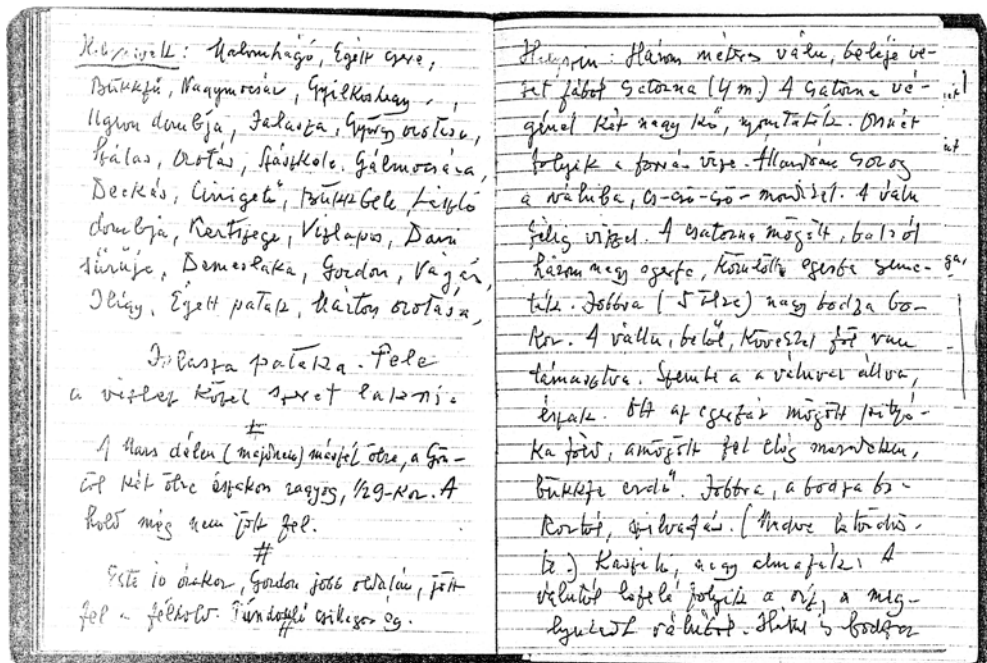 Helynevek: Malomhágó, Égett csere,
Bükkfű, Nagymocsár, Gyilkoshegy,
Ugron dombja, Jalasza, György orotása,
Szálas, Orotás, Gálmocsára,
Deckás, Cinigető, Bükkbele, László
dombja, Kertszege, Vizlapos, Dani
sűrűje, Gordon, Vágás,
Égett patak, Márton orotása,
pataka. Pele
a vizhez közel szeret lakni.
#
A Mars délen (majdnem) másfél ölre, a Gön-
cöl két ölre északon ragyog, 1/29-kor. A
hold még nem jött fel.
#
Este 10 órakor, Gordon jobb oldalán, jött
fel a félhold. Tündöklő csillagos ég.
#
Három méteres válu, beléje ve-
zet fából csatorna (4 m.) A csatorna vé-
génél két nagy kő, nyomtaték. Onnét
folyik a forrás vize. Állandóan csorog
a váluba, cs-cső-cső- mondizsel. A válu
félig vizzel. A csatorna mögött, balról
három nagy egerfa, körülötte egerfa cseme-
ték. Jobbra (5 ölre) nagy bodza bo-
kor. A vállu, belől, kövekkel föl van
támasztva. Szembe a váluval állva,
észak. Ott az egerfák mögött pityó-
ka föld, amögött fel elég meredeken,
bükkfa erdő. Jobbra, a bodza bo-
kortól, szilvafák. (Medve letördös-
te.) nagy almafák. A
válutól lefelé folyik a víz, a meg-
lyukadt válutól. bodza